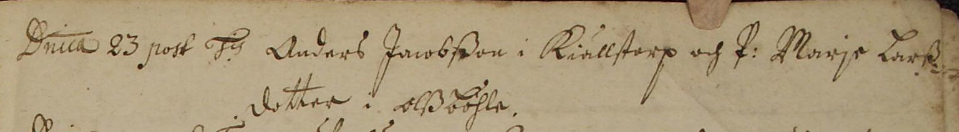 Dnica 23 post Tr: Anders Jacobsson i Kiällstorp och P: Marje Larß
dotter i Aßböhle.